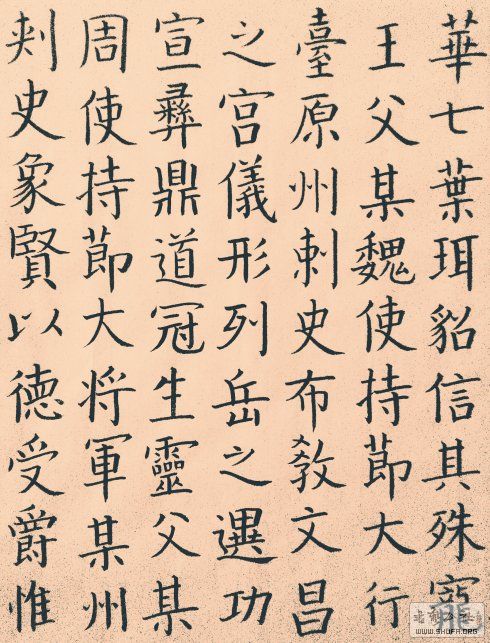 華七葉珥貂信其殊寵
王父某魏使持節大行
臺原州刺史布教文昌
之宮儀形列岳之選功
宣彝鼎道冠生靈父某
周使持節大将軍某州
刺史象賢以德受爵惟
WWW.SHUFA.ORG